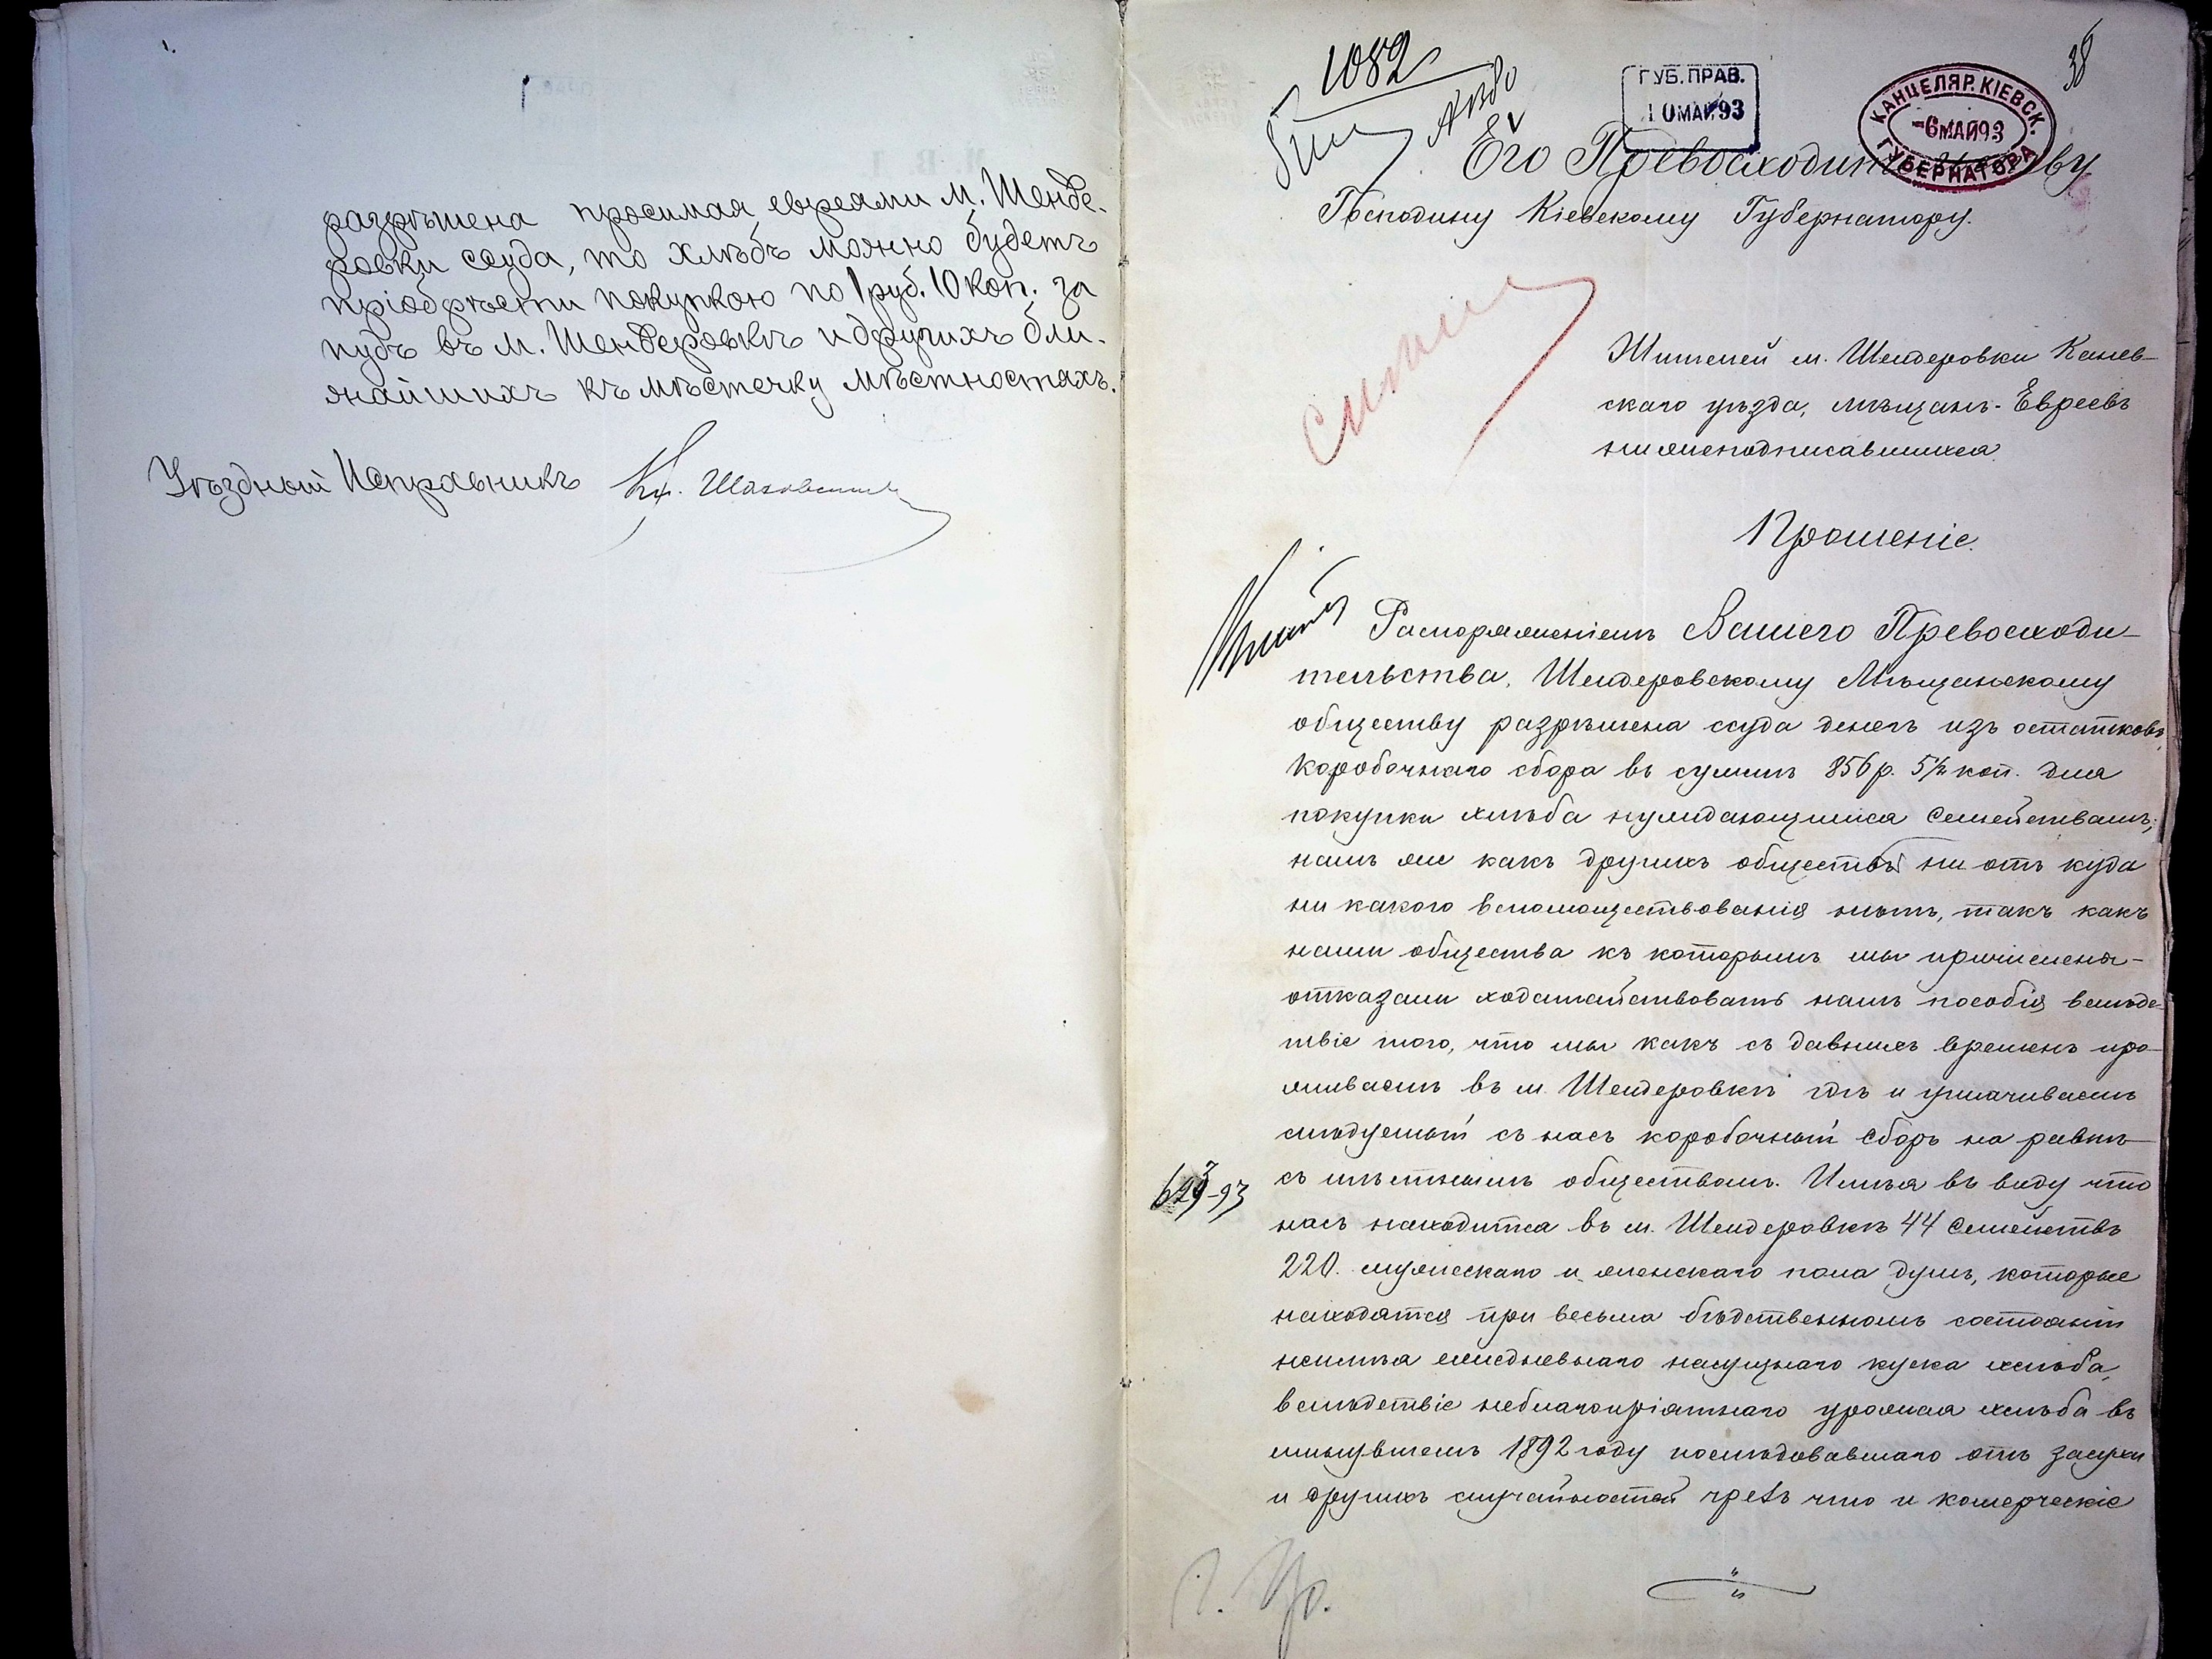 разрѣшена просимая евреями м. Шенде-
ровки ссуда, то хлѣбъ можно будетъ
пріобрѣсти покупкою по 1 руб. 10 коп. за
пудъ въ м. Шендеровкѣ и другихъ бли-
жайшихъ къ мѣстечку мѣстностяхъ.
Уѣздный Исправникъ Кн. Шаховской
1082
38
ГУБ. ПРАВ.
10 МАЙ 93
КАНЦЕЛЯР. КІЕВСК.
-6 МАЙ 93
ГУБЕРНАТОРА
Его Превосходительству
Господину Кіевскому Губернатору.
Жителей м. Шендеровки Канев-
скаго уѣзда, мѣщанъ-Евреевъ
нижеподписавшихся
Прошеніе.
Распоряженіемъ Вашего Превосходи-
тельства, Шендеровскому Мѣщанскому
обществу разрѣшена ссуда денегъ изъ остатковъ
коробочнаго сбора въ суммѣ 856 р. 5½ коп. для
покупки хлѣба нуждающимся семействамъ;
намъ же какъ другихъ обществъ ни отъ куда
ни какого вспомоществованія нѣтъ, такъ какъ
наши общества къ которымъ мы причислены-
отказали ходатайствовать намъ пособія вслѣдс-
твіе того, что мы какъ съ давнихъ временъ про-
живаемъ въ м. Шендеровкѣ гдѣ и уплачиваемъ
слѣдуемый съ насъ коробочный сборъ на равнѣ
съ мѣстнымъ обществомъ. Имѣя въ виду что
насъ находится въ м. Шендеровкѣ 44 семействъ
220. мужескаго и женскаго пола душъ, которые
находятся при весьма бѣдственномъ состояніи
неимѣя ежедневнаго насущнаго куска хлѣба,
вслѣдствіе неблагопріятнаго урожая хлѣба въ
минувшемъ 1892 году послѣдовавшаго отъ засухи
и другихъ случайностей чрезъ что и комерческіе